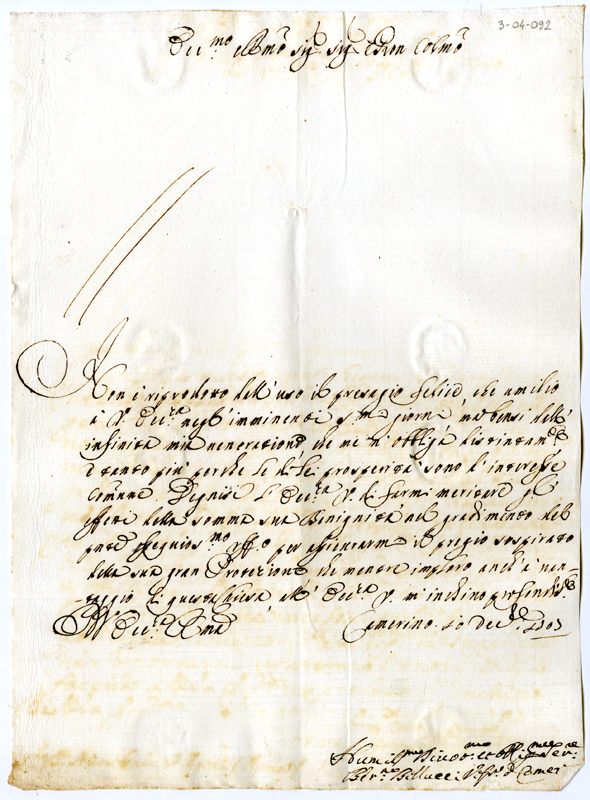 3-04-092
Ecc.mo Rmo Sig.r Sig.r Pron Colmo
Non è riprodotto dall'uso il presagio felice, che umilio
à V. Ecc.za negl'imminenti S.mi giorni mà bensi dall'
infinita mia veneratione, che me n'obbliga distintam.e
e tanto più perche le di Lei prosperità sono l'interesse
comune. Degnisi l'Ecc.za V. di farmi meritare gl'
effetti della somma sua Benignità nel gradimento del
pnte ossequios.mo uff.o per assicurarmi il pregio sospirato
della sua gran Protezione, che mentre imploro anch'à van-
taggio di questa Chiesa, all' Ecc.za V. m'inchino profondam.e
Di V. Ecc.za Rma
Camerino 10 Dec.e
Humil.mo Divot.mo et Obblig.mo Ser.e
Ber.no Bellucci V.o di Camer.